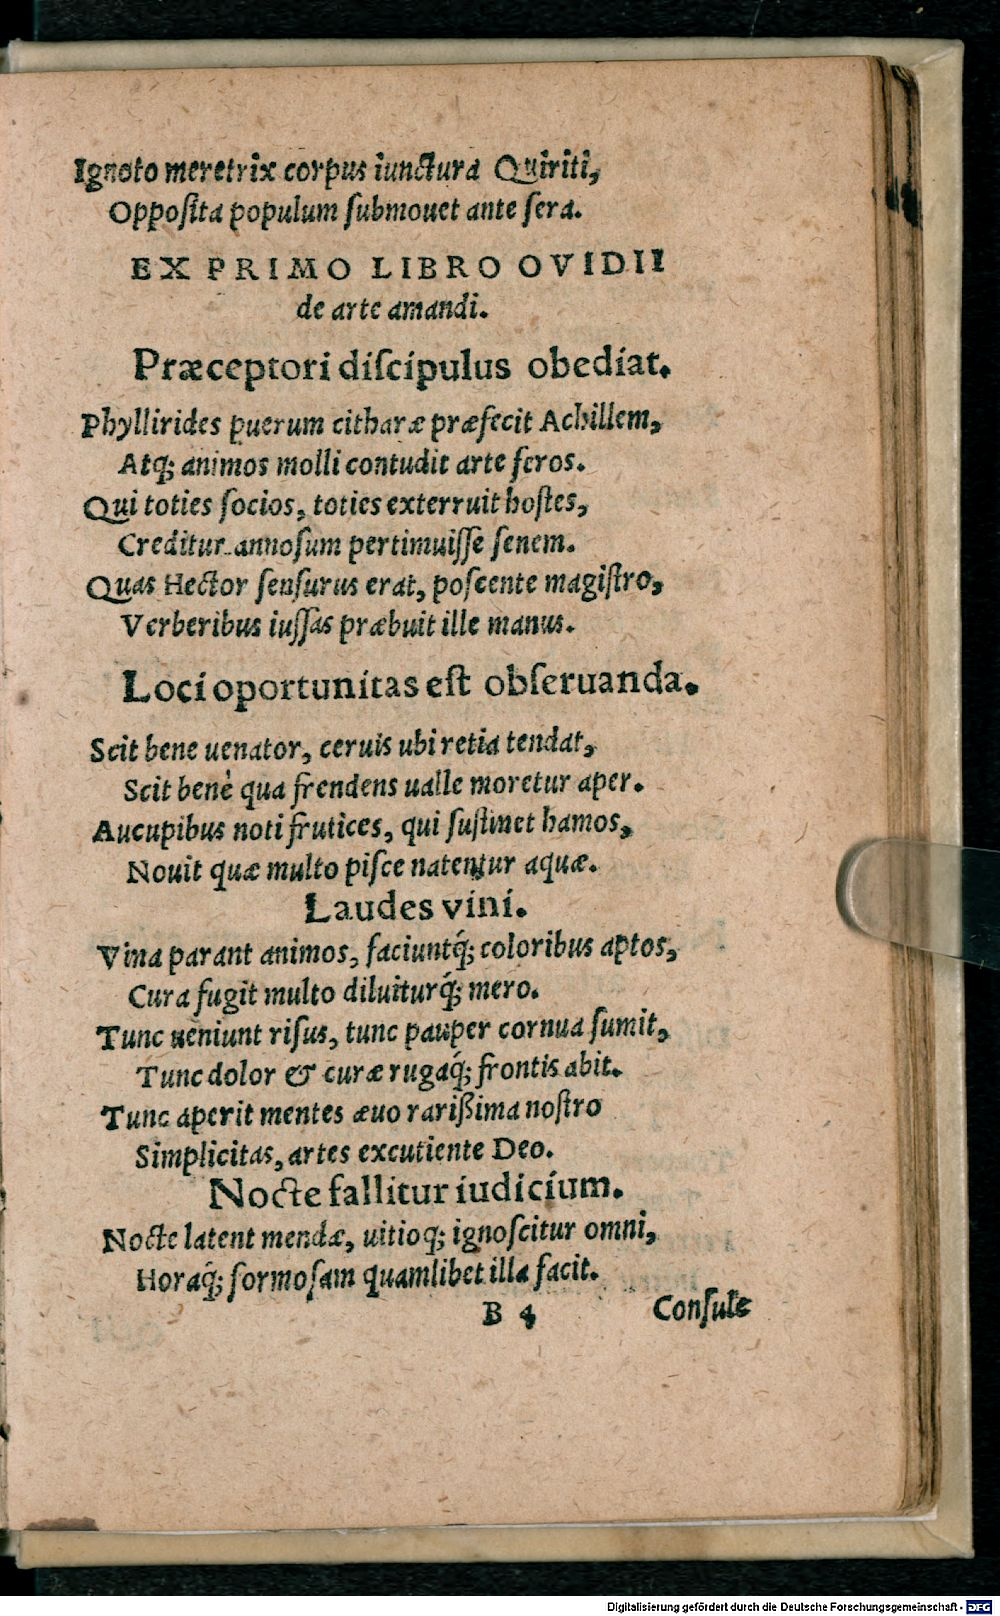 Ignoto meretrix corpus iunctura Quiriti,
Opposita populum submouet ante sera.
EX PRIMO LIBRO OVIDII
de arte amandi.
Præceptori discipulus obediat.
Phyllirides puerum citharæ præfecit Achillem,
Atq; animos molli contudit arte feros.
Qui toties socios, toties exterruit hostes,
Creditur annosum pertimuisse senem.
Quas Hector sensurus erat, poscente magistro,
Verberibus iussas præbuit ille manus.
Loci oportunitas est obseruanda.
Scit bene uenator, ceruis ubi retia tendat,
Scit benè qua frendens ualle moretur aper.
Aucupibus noti frutices, qui sustinet hamos,
Nouit quæ multo pisce natentur aquæ.
Laudes vini.
Vina parant animos, faciuntq́; coloribus aptos,
Cura fugit multo diluiturq́; mero.
Tunc ueniunt risus, tunc pauper cornua sumit,
Tunc dolor & curæ rugaq́; frontis abit.
Tunc aperit mentes æuo rarißima nostro
Simplicitas, artes excutiente Deo.
Nocte fallitur iudicium.
Nocte latent mendæ, uitioq; ignoscitur omni,
Horaq́; formosam quamlibet illa facit.
B 4 Consule
Digitalisierung gefördert durch die Deutsche Forschungsgemeinschaft - DFG